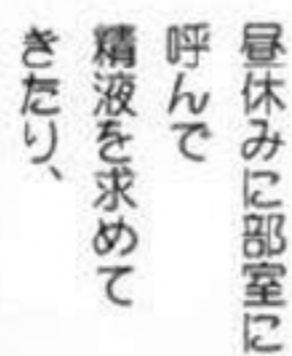 昼休みに部室に
呼んで
精液を求めて
きたり、